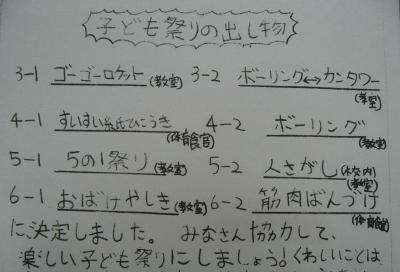 子ども祭りの出し物
3-1 ゴーゴーロケット(教室) 3-2 ボーリング↔カンタワー(教室)
4-1 すいすい紙ひこうき(体育館) 4-2 ボーリング(教室)
5-1 5の1祭り(教室) 5-2 人さがし(校内)(教室)
6-1 おばけやしき(教室) 6-2 筋肉ばんづけ(体育館)
に決定しました。 みなさん協力して、
楽しい子ども祭りにしましょう♪くわしいことは